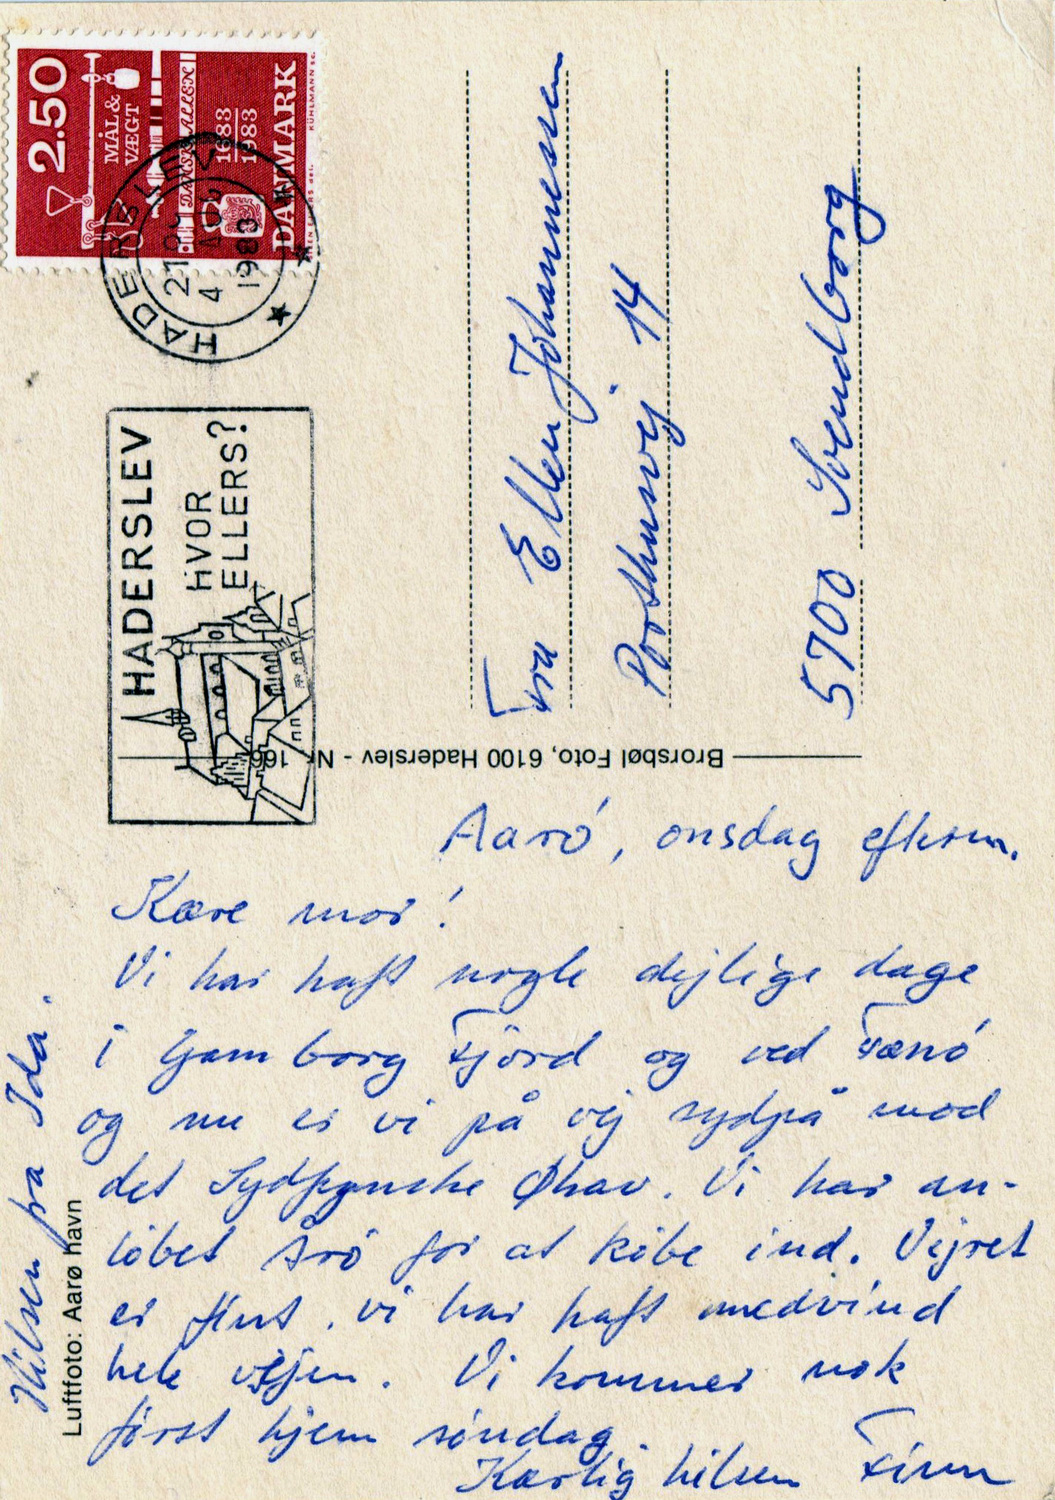 2.50
MÅL &
VÆGT
DANSKE ALLEN
1683
1983
DANMARK
KÜHLMANN sc.
HADERSLEV
21
4
1983
HADERSLEV
HVOR
ELLERS?
Fru Ellen Johannessen
14
5700 Svendborg
Brorsbøl Foto, 6100 Haderslev - Nr. 166
Aarø, onsdag efterm.
Kære mor!
Vi har haft nogle dejlige dage
i Gamborg Fjord og ved Fænø
og nu er vi på vej sydpå mod
det Sydfynske Øhav. Vi har an-
løbet Årø for at købe ind. Vejret
er fint, vi har haft medvind
hele vejen. Vi kommer nok
først hjem søndag.
Kærlig hilsen Finn
Hilsen fra Ida.
Luftfoto: Aarø havn